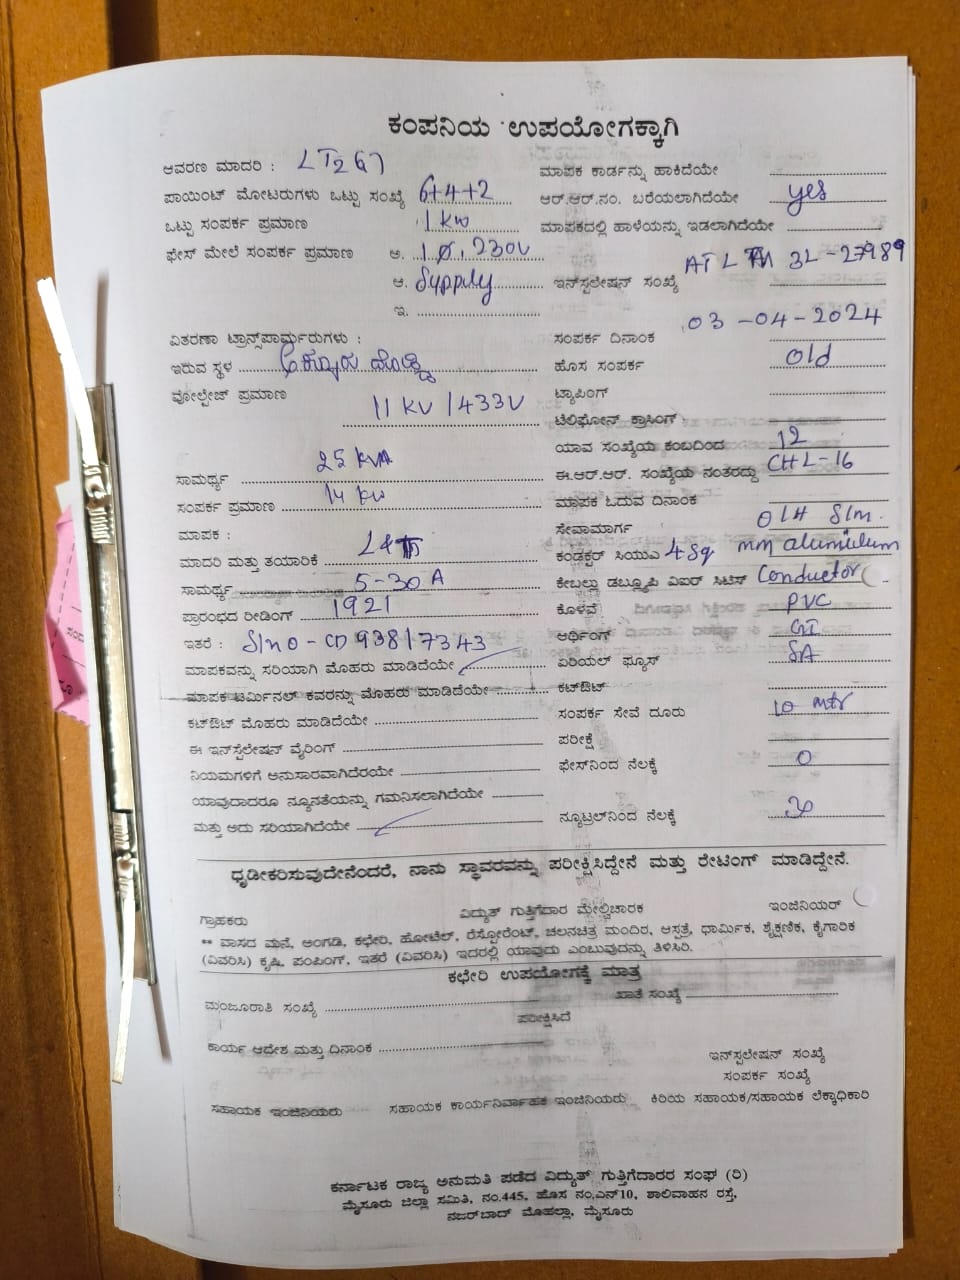 ಕಂಪನಿಯ ಉಪಯೋಗಕ್ಕಾಗಿ
ಆವರಣ ಮಾದರಿ : LT2
ಪಾಯಿಂಟ್ ಮೋಟರುಗಳು ಒಟ್ಟು ಸಂಖ್ಯೆ 6+4+2
ಒಟ್ಟು ಸಂಪರ್ಕ ಪ್ರಮಾಣ 1 kw
ಫೇಸ್ ಮೇಲೆ ಸಂಪರ್ಕ ಪ್ರಮಾಣ ಅ. 1Ø, 230V
ಆ. Supply
ಇ.
ವಿತರಣಾ ಟ್ರಾನ್ಸ್‌ಪಾರ್ಮರುಗಳು :
ಇರುವ ಸ್ಥಳ
ವೋಲ್ಟೇಜ್ ಪ್ರಮಾಣ 11 KV / 433V
ಸಾಮರ್ಥ್ಯ 25 KVA
ಸಂಪರ್ಕ ಪ್ರಮಾಣ 14 kw
ಮಾಪಕ :
ಮಾದರಿ ಮತ್ತು ತಯಾರಿಕೆ L&T
ಸಾಮರ್ಥ್ಯ 5-30 A
ಪ್ರಾರಂಭದ ರೀಡಿಂಗ್ 1921
ಇತರೆ : Slno - CD 93817343
ಮಾಪಕವನ್ನು ಸರಿಯಾಗಿ ಮೊಹರು ಮಾಡಿದೆಯೇ
ಮಾಪಕ ಟರ್ಮಿನಲ್ ಕವರನ್ನು ಮೊಹರು ಮಾಡಿದೆಯೇ
ಕಟ್‌ಔಟ್ ಮೊಹರು ಮಾಡಿದೆಯೇ
ಈ ಇನ್‌ಸ್ಟಲೇಷನ್ ವೈರಿಂಗ್
ನಿಯಮಗಳಿಗೆ ಅನುಸಾರವಾಗಿದೆರಯೇ
ಯಾವುದಾದರೂ ನ್ಯೂನತೆಯನ್ನು ಗಮನಿಸಲಾಗಿದೆಯೇ
ಮತ್ತು ಅದು ಸರಿಯಾಗಿದೆಯೇ
ಮಾಪಕ ಕಾರ್ಡನ್ನು ಹಾಕಿದೆಯೇ
ಆರ್.ಆರ್.ನಂ. ಬರೆಯಲಾಗಿದೆಯೇ yes
ಮಾಪಕದಲ್ಲಿ ಹಾಳೆಯನ್ನು ಇಡಲಾಗಿದೆಯೇ
ಇನ್‌ಸ್ಟಲೇಷನ್ ಸಂಖ್ಯೆ 3L-27989
ಸಂಪರ್ಕ ದಿನಾಂಕ 03-04-2024
ಹೊಸ ಸಂಪರ್ಕ Old
ಟ್ಯಾಪಿಂಗ್
ಟೆಲಿಫೋನ್ ಕ್ರಾಸಿಂಗ್
ಯಾವ ಸಂಖ್ಯೆಯ ಕಂಬದಿಂದ 12
ಈ.ಆರ್.ಆರ್. ಸಂಖ್ಯೆಯ ನಂತರದ್ದು CHL-16
ಮಾಪಕ ಓದುವ ದಿನಾಂಕ
ಸೇವಾಮಾರ್ಗ O/H S/m.
ಕಂಡಕ್ಟರ್ ಸಿಯುಎ 4 Sq mm aluminium
ಕೇಬಲ್ಲು ಡಬ್ಲ್ಯೂಪಿ ಎಐರ್ ಸಿಟಿಸ್ Conductor
ಕೊಳವೆ PVC
ಆರ್ಥಿಂಗ್ GI
ಏರಿಯಲ್ ಫ್ಯೂಸ್ 5A
ಕಟ್‌ಔಟ್
ಸಂಪರ್ಕ ಸೇವೆ ದೂರು 10 mtr
ಪರೀಕ್ಷೆ
ಫೇಸ್‌ನಿಂದ ನೆಲಕ್ಕೆ 0
ನ್ಯೂಟ್ರಲ್‌ನಿಂದ ನೆಲಕ್ಕೆ
ಧೃಡೀಕರಿಸುವುದೇನೆಂದರೆ, ನಾನು ಸ್ಥಾವರವನ್ನು ಪರೀಕ್ಷಿಸಿದ್ದೇನೆ ಮತ್ತು ರೇಟಿಂಗ್ ಮಾಡಿದ್ದೇನೆ.
ಗ್ರಾಹಕರು ವಿದ್ಯುತ್ ಗುತ್ತಿಗೆದಾರ ಮೇಲ್ವಿಚಾರಕ ಇಂಜಿನಿಯರ್
** ವಾಸದ ಮನೆ, ಅಂಗಡಿ, ಕಛೇರಿ, ಹೋಟೆಲ್, ರೆಸ್ಟೋರೆಂಟ್, ಚಲನಚಿತ್ರ ಮಂದಿರ, ಆಸ್ಪತ್ರೆ, ಧಾರ್ಮಿಕ, ಶೈಕ್ಷಣಿಕ, ಕೈಗಾರಿಕೆ
(ವಿವರಿಸಿ) ಕೃಷಿ, ಪಂಪಿಂಗ್, ಇತರೆ (ವಿವರಿಸಿ) ಇದರಲ್ಲಿ ಯಾವುದು ಎಂಬುವುದನ್ನು ತಿಳಿಸಿರಿ.
ಕಛೇರಿ ಉಪಯೋಗಕ್ಕೆ ಮಾತ್ರ
ಮಂಜೂರಾತಿ ಸಂಖ್ಯೆ ಖಾತೆ ಸಂಖ್ಯೆ
ಪರೀಕ್ಷಿಸಿದೆ
ಕಾರ್ಯ ಆದೇಶ ಮತ್ತು ದಿನಾಂಕ
ಇನ್‌ಸ್ಟಲೇಷನ್ ಸಂಖ್ಯೆ
ಸಂಪರ್ಕ ಸಂಖ್ಯೆ
ಸಹಾಯಕ ಇಂಜಿನಿಯರು ಸಹಾಯಕ ಕಾರ್ಯನಿರ್ವಾಹಕ ಇಂಜಿನಿಯರು ಕಿರಿಯ ಸಹಾಯಕ/ಸಹಾಯಕ ಲೆಕ್ಕಾಧಿಕಾರಿ
ಕರ್ನಾಟಕ ರಾಜ್ಯ ಅನುಮತಿ ಪಡೆದ ವಿದ್ಯುತ್ ಗುತ್ತಿಗೆದಾರರ ಸಂಘ (ರಿ)
ಮೈಸೂರು ಜಿಲ್ಲಾ ಸಮಿತಿ, ನಂ.445, ಹೊಸ ನಂ,ಎನ್10, ಶಾಲಿವಾಹನ ರಸ್ತೆ,
ನಜರ್‌ಬಾದ್ ಮೊಹಲ್ಲಾ, ಮೈಸೂರು